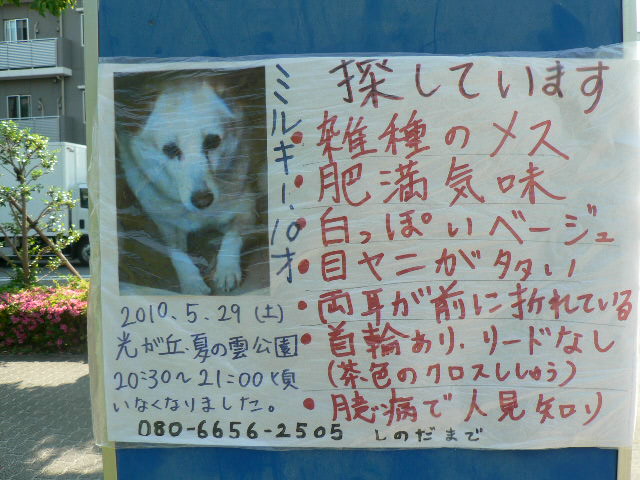 探しています
ミルキー、10才
• 雑種のメス
• 肥満気味
• 白っぽいベージュ
• 目ヤニが多い
• 両耳が前に折れている
• 首輪あり、リードなし
(茶色のクロスししゅう)
• 臆病で人見知り
2010.5.29(土)
光が丘、夏の雲公園
20:30～21:00頃
いなくなりました。
080-6656-2505 しのだまで